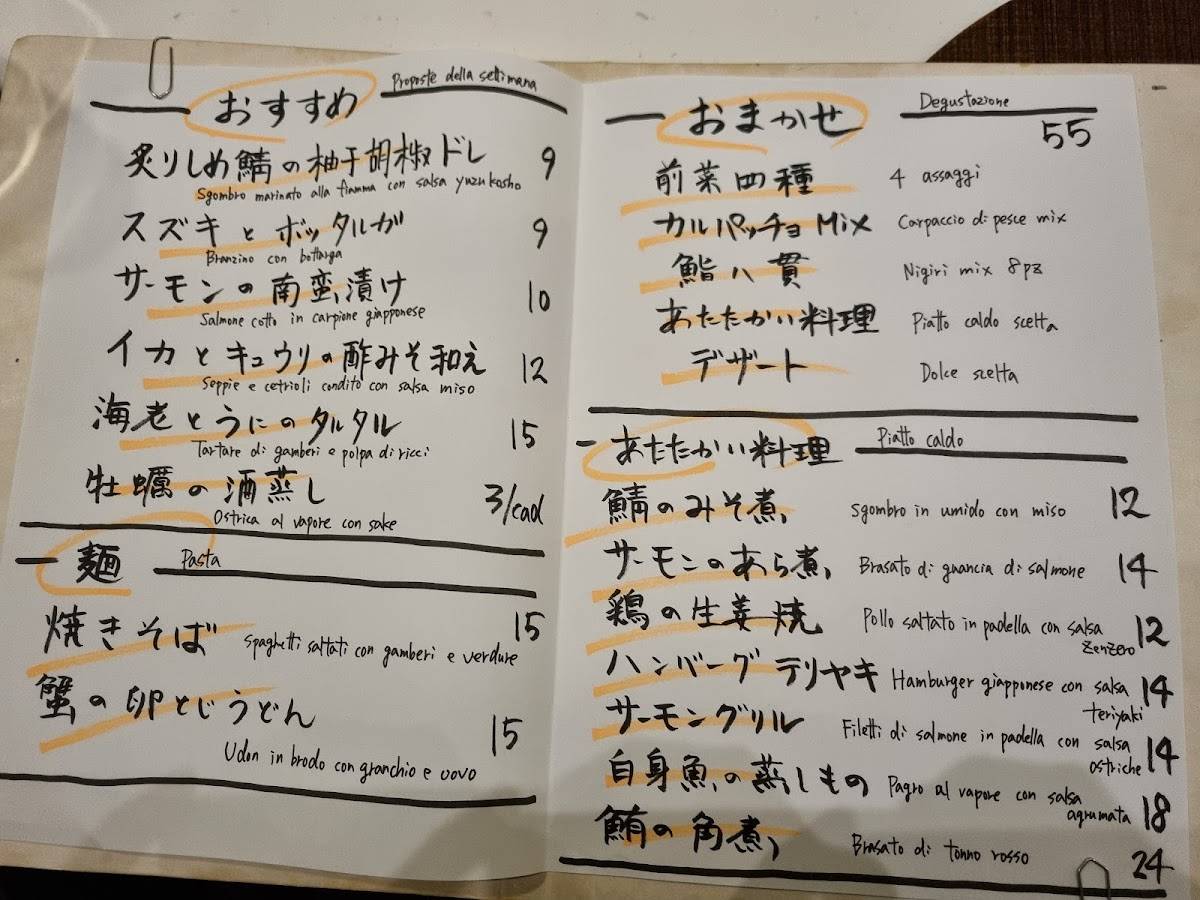 おすすめ Proposte della settimana
炙りしめ鯖の柚子胡椒ドレ 9
Sgombro marinato alla fiamma con salsa yuzukosho
スズキとボッタルガ 9
Branzino con bottarga
サーモンの南蛮漬け 10
Salmone cotto in carpione giapponese
イカとキュウリの酢みそ和え 12
Seppie e cetrioli condito con salsa miso
海老とうにのタルタル 15
Tartare di gamberi e polpa di ricci
牡蠣の酒蒸し 3/cad
Ostrica al vapore con sake
麺 Pasta
焼きそば 15
Spaghetti saltati con gamberi e verdure
蟹の卵とじうどん 15
Udon in brodo con granchio e uovo
おまかせ Degustazione 55
前菜四種 4 assaggi
カルパッチョMix Carpaccio di pesce mix
鮨八貫 Nigiri mix 8pz
あたたかい料理 Piatto caldo scelta
デザート Dolce scelta
あたたかい料理 Piatto caldo
鯖のみそ煮 Sgombro in umido con miso 12
サーモンのあら煮 Brasato di guancia di salmone 14
鶏の生姜焼 Pollo saltato in padella con salsa 12
zenzero
ハンバーグテリヤキ Hamburger giapponese con salsa 14
teriyaki
サーモングリル Filetti di salmone in padella con salsa 14
ostriche
白身魚の蒸しもの Pagro al vapore con salsa 18
agrumata
鮪の角煮 Brasato di tonno rosso 24